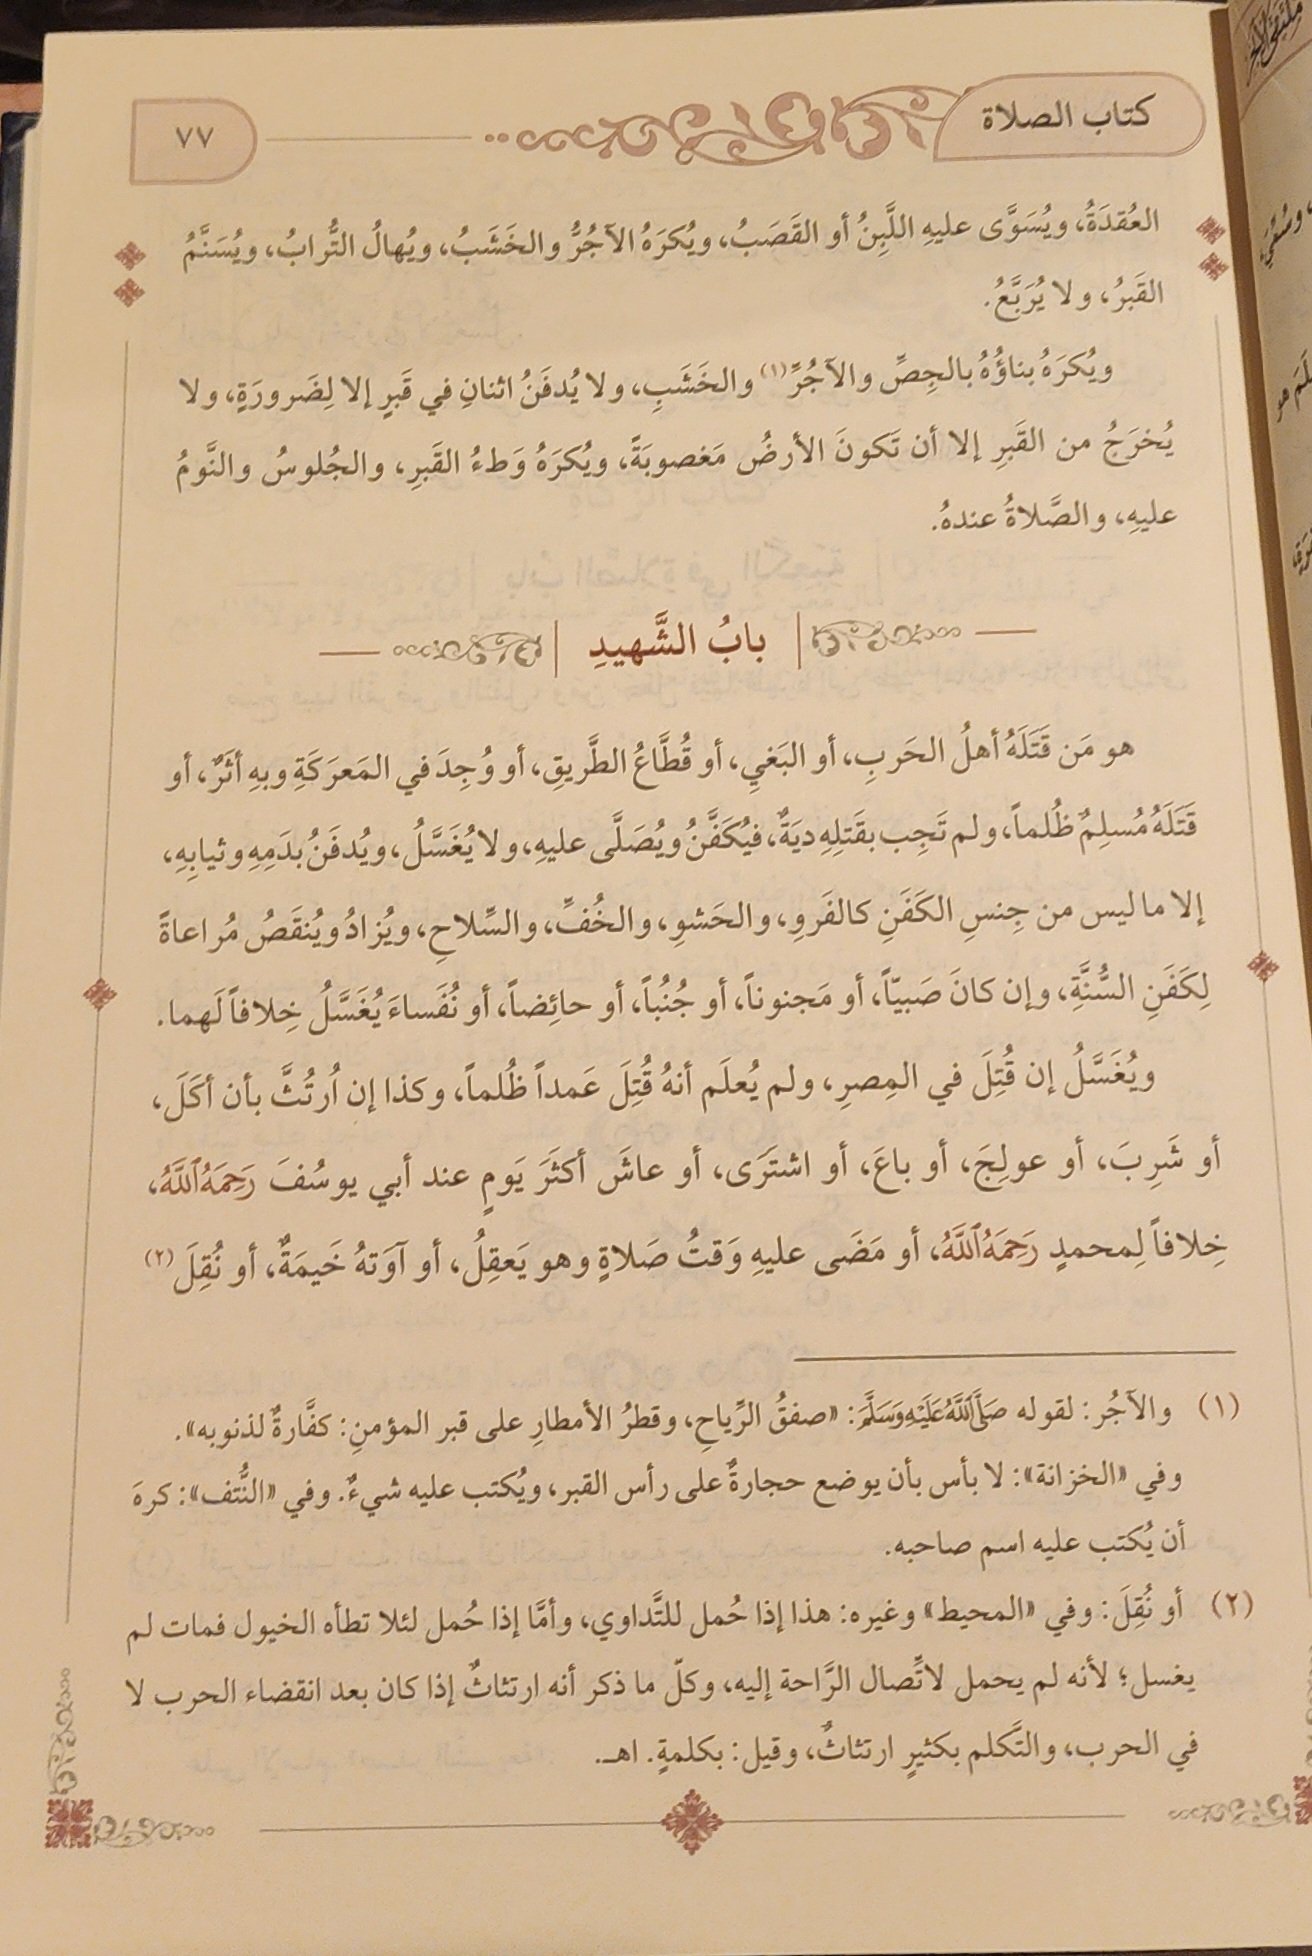 كتاب الصلاة
٧٧
العُقدَةُ، ويُسَوَّى عليهِ اللَّبِنُ أو القَصَبُ، ويُكرَهُ الآجُرُّ والخَشَبُ، ويُهالُ التُّرابُ، ويُسَنَّمُ
القَبرُ، ولا يُرَبَّعُ.
ويُكرَهُ بناؤُهُ بالجِصِّ والآجُرِّ(١) والخَشَبِ، ولا يُدفَنُ اثنانِ في قَبرٍ إلا لِضَرورَةٍ، ولا
يُخرَجُ من القَبرِ إلا أن تَكونَ الأرضُ مَغصوبَةً، ويُكرَهُ وَطءُ القَبرِ، والجُلوسُ والنَّومُ
عليهِ، والصَّلاةُ عندهُ.
بابُ الشَّهيدِ
هو مَن قَتَلَهُ أهلُ الحَربِ، أو البَغيِ، أو قُطَّاعُ الطَّريقِ، أو وُجِدَ في المَعرَكَةِ وبهِ أثَرٌ، أو
قَتَلَهُ مُسلِمٌ ظُلماً، ولم تَجِب بقَتلِهِ ديَةٌ، فيُكَفَّنُ ويُصَلَّى عليهِ، ولا يُغَسَّلُ، ويُدفَنُ بدَمِهِ وثيابِهِ،
إلا ما ليس من جِنسِ الكَفَنِ كالفَروِ، والحَشوِ، والخُفِّ، والسِّلاحِ، ويُزادُ ويُنقَصُ مُراعاةً
لِكَفَنِ السُّنَّةِ، وإن كانَ صَبيّاً، أو مَجنوناً، أو جُنُباً، أو حائِضاً، أو نُفَساءَ يُغَسَّلُ خِلافاً لَهما.
ويُغَسَّلُ إن قُتِلَ في المِصرِ، ولم يُعلَم أنهُ قُتِلَ عَمداً ظُلماً، وكذا إن اُرتُثَّ بأن أكَلَ،
أو شَرِبَ، أو عولِجَ، أو باعَ، أو اشتَرَى، أو عاشَ أكثَرَ يَومٍ عند أبي يوسُفَ رَحِمَهُ ٱللَّهُ،
خِلافاً لِمحمدٍ رَحِمَهُ ٱللَّهُ، أو مَضَى عليهِ وَقتُ صَلاةٍ وهو يَعقِلُ، أو آوَتهُ خَيمَةٌ، أو نُقِلَ(٢)
(١) والآجُر: لقوله صَلَّى ٱللَّهُ عَلَيْهِ وَسَلَّمَ: «صفقُ الرِّياحِ، وقطرُ الأمطارِ على قبر المؤمنِ: كفَّارةٌ لذنوبه».
وفي «الخزانة»: لا بأس بأن يوضع حجارةٌ على رأس القبر، ويُكتب عليه شيءٌ. وفي «النُّتف»: كرهَ
أن يُكتب عليه اسم صاحبه.
(٢) أو نُقِلَ: وفي «المحيط» وغيره: هذا إذا حُمل للتَّداوي، وأمَّا إذا حُمل لئلا تطأه الخيول فمات لم
يغسل؛ لأنه لم يحمل لاتِّصال الرَّاحة إليه، وكلّ ما ذكر أنه ارتثاثٌ إذا كان بعد انقضاء الحرب لا
في الحرب، والتَّكلم بكثيرٍ ارتثاثٌ، وقيل: بكلمةٍ. اهـ.